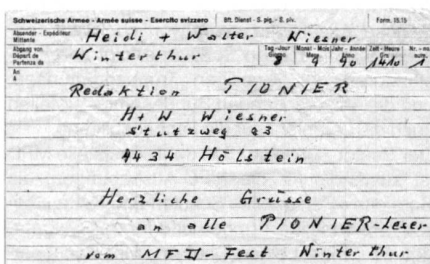 Schweizerische Armee - Armée suisse - Esercito svizzero Bft. Dienst - S. pig. - S. piv. Form. 15.15
Absender - Expéditeur
Mittente Heidi + Walter Wiesner
Abgang von
Départ de
Partenza da Winterthur
Tag - Jour
Giorno 8 Monat - Mois
Mese 9 Jahr - Année
Anno 90 Zeit - Heure
Ora 1410 Nr. 1
An
A
Redaktion PIONIER
H + W Wiesner
Stutzweg 23
4434 Hölstein
Herzliche Grüsse
an alle PIONIER-Leser
vom MFD-Fest Winterthur